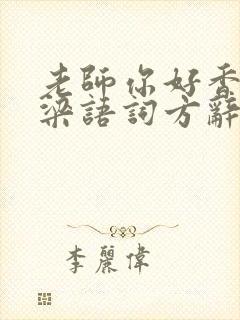 老師你好香
梁語詞方辭
李麗偉